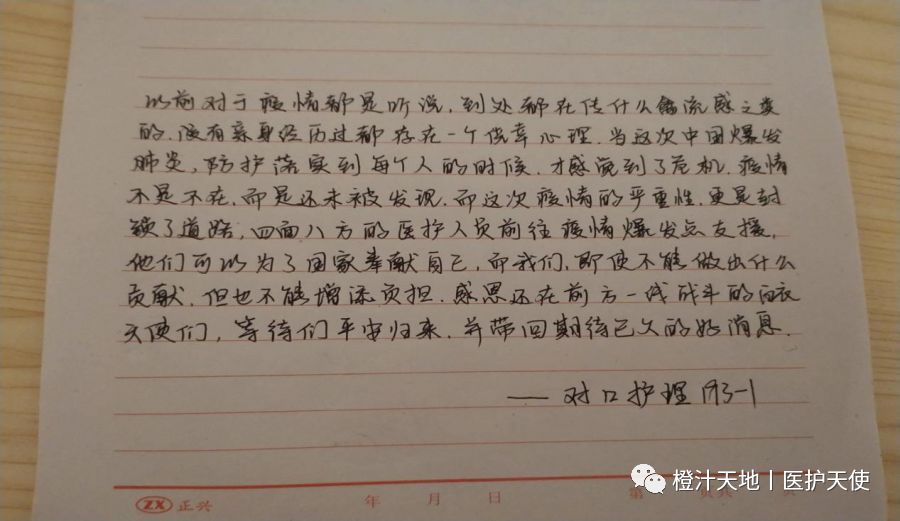 以前对于疫情都是听说，到处都在传什么禽流感之类
的．没有亲身经历过都存在一个侥幸心理．当这次中国爆发
肺炎，防护落实到每个人的时候．才感觉到了危机．疫情
不是不在．而是还未被发现．而这次疫情的严重性．更是封
锁了道路，四面八方的医护人员前往疫情爆发点支援，
他们可以为了国家奉献自己，而我们，即使不能做出什么
贡献．但也不能增添负担．感恩还在前方一线战斗的白衣
天使们，等待们平安归来．并带回期待已久的好消息．
——对口护理193-1
ZX 正兴 年 月 日 第 页共 页
橙汁天地丨医护天使